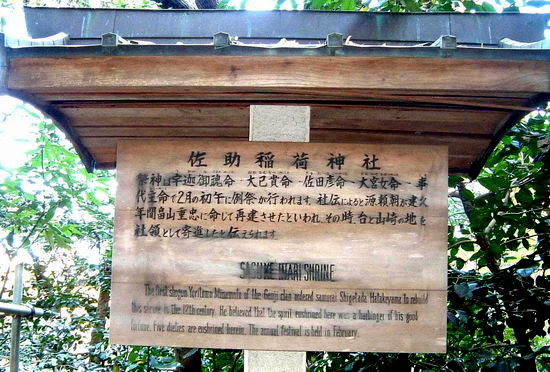 佐助稲荷神社
祭神は宇迦御魂命―大己貴命―佐田彦命―大宮女命―事
代主命で2月の初午に例祭が行われます。社伝によると源頼朝が建久
年間畠山重忠に命して再建させたといわれ、その時、台と山崎の地を
社領として寄進したと伝えられます
SASUKE INARI SHRINE
The first shogun Yoritomo Minamoto of the Genji clan ordered samurai Shigetada Hatakeyama to rebuild
this shrine in the 12th century. He believed that the spirit enshrined here was a harbinger of his good
fortune. Five dieties are enshrined herein. The annual festival is held in February.